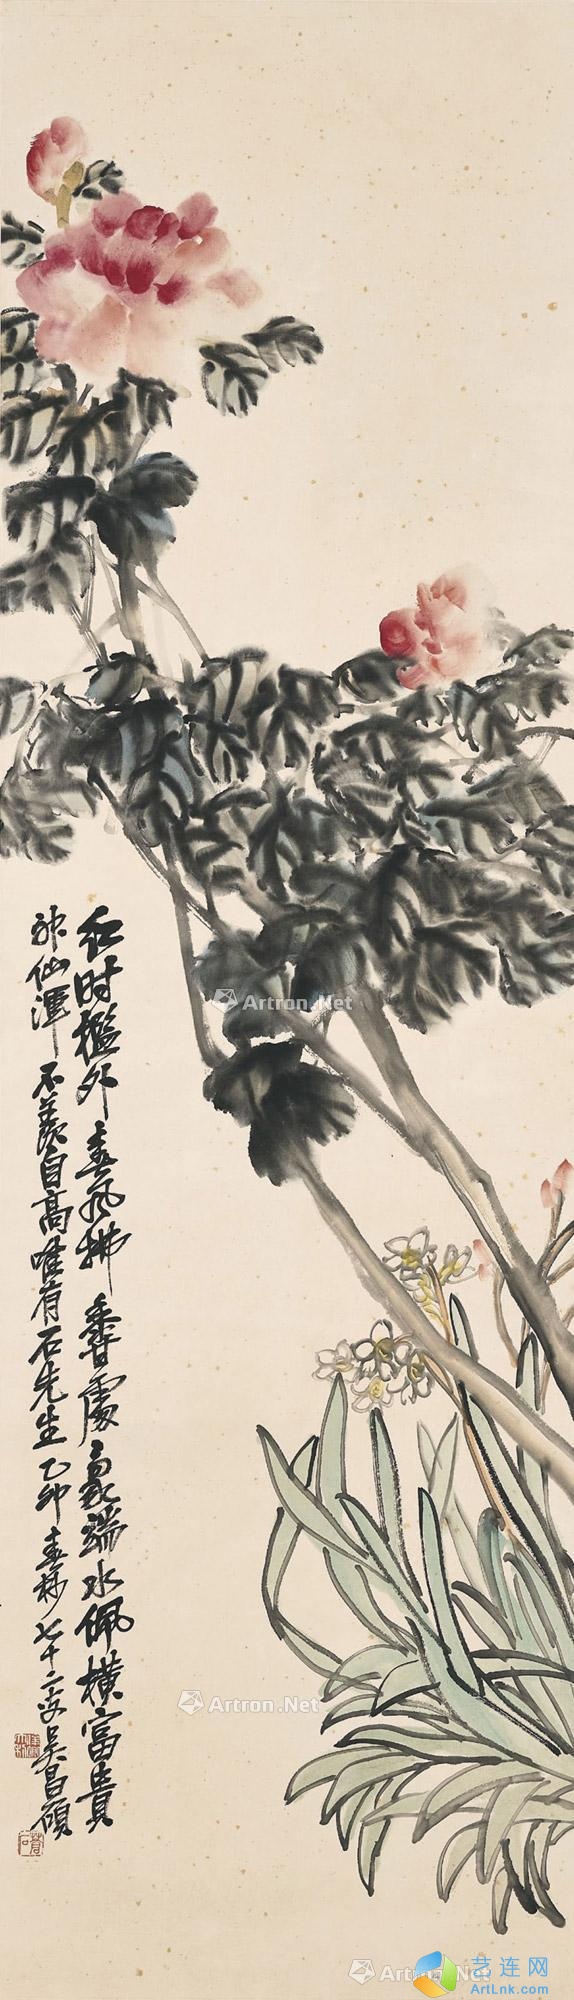 红时槛外春风拂香处豪端水佩横富贵
神仙浑不羡自高唯有石先生乙卯春杪七十二叟吴昌硕
Artron.Net
Artron.Net
Artron.Net
Artron.Net
艺连网
ArtLnk.com